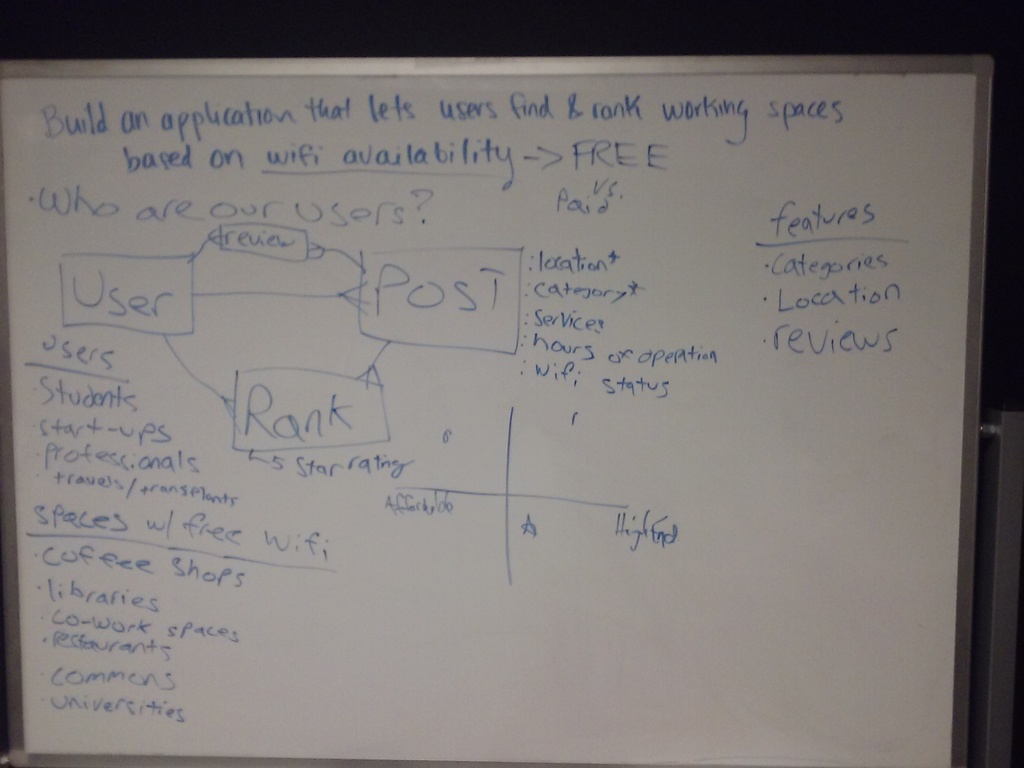 Build an application that lets users find & rank working spaces
based on wifi availability -> FREE
vs.
Paid
• Who are our users?
review
User
POST
• location*
• category*
• services
• hours of operation
• wifi status
Rank
5 star rating
features
• categories
• Location
• reviews
users
• Students
• start-ups
• professionals
• travels/transplants
spaces w/ free wifi
• coffee shops
• libraries
• co-work spaces
• restaurants
• commons
• universities
Affordable
High End